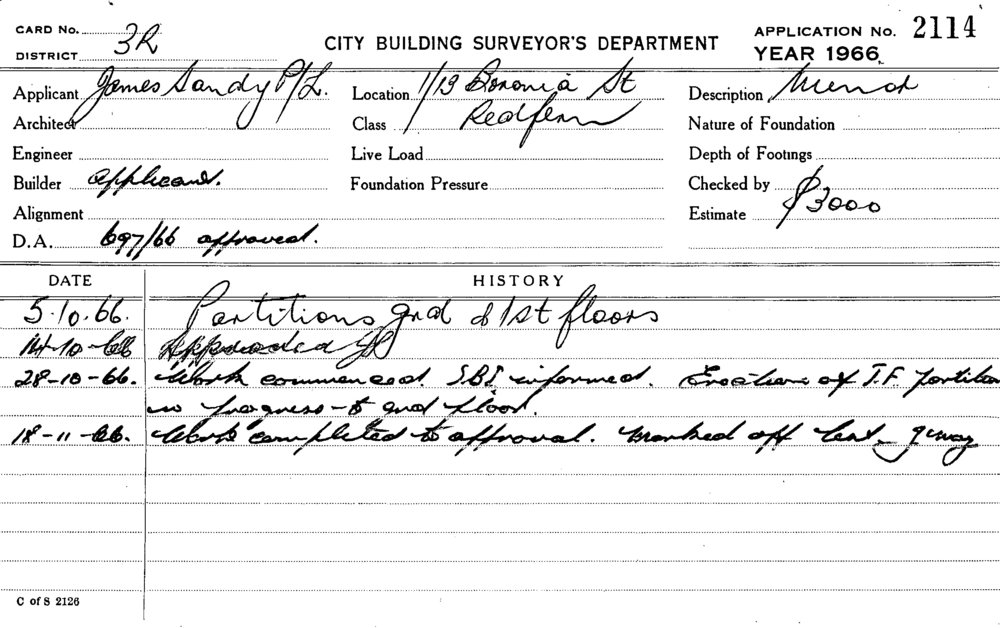 CARD No. APPLICATION No. 2114
DISTRICT 3R CITY BUILDING SURVEYOR'S DEPARTMENT YEAR 1966
Applicant James Sandy P/L. Location 1/13 Boronia St Description
Architect Class Redfern Nature of Foundation
Engineer Live Load Depth of Footings
Builder Applicant. Foundation Pressure Checked by
Alignment Estimate $3000
D.A. 697/66 approved.
DATE HISTORY
5.10.66. Partitions grd & 1st floors
14-10-66 Approved
28-10-66. Work commenced. S.B.I. informed. Erection of T.F. partition
in progress to grd floor.
18-11-66. Work completed to approval. Marked off
C of S 2126